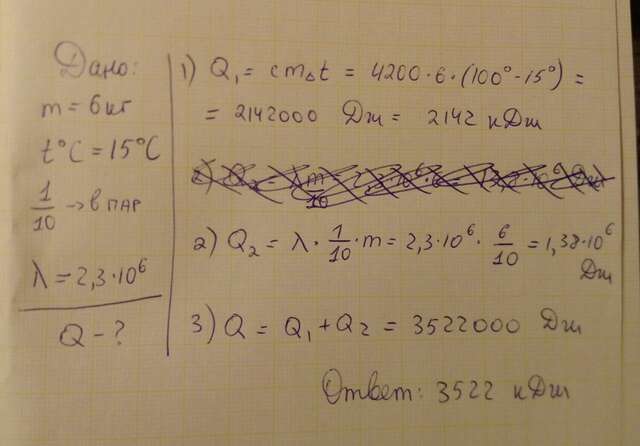 Дано:
m = 6 кг
t°C = 15°C
1/10 → в пар
λ = 2,3·10⁶
Q - ?
1) Q₁ = cmΔt = 4200·6·(100°-15°) =
= 2142000 Дж = 2142 кДж
2) Q₂ = λ · 1/10 · m = 2,3·10⁶ · 6/10 = 1,38·10⁶
Дж
3) Q = Q₁ + Q₂ = 3522000 Дж
Ответ: 3522 кДж